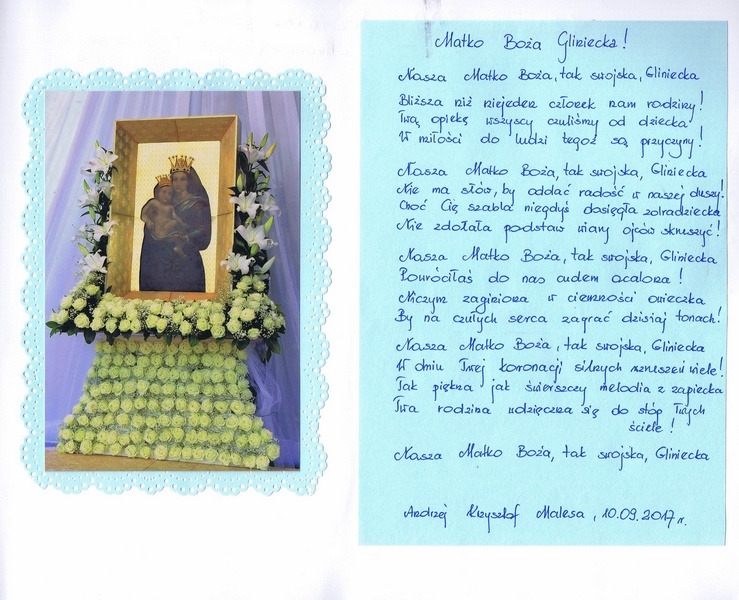 Matko Boża Gliniecka!
Nasza Matko Boża, tak swojska, Gliniecka
Bliższa niż niejeden człowiek nam rodziny!
Twą opiekę wszyscy czuliśmy od dziecka
W miłości do ludzi tegoż są przyczyny!
Nasza Matko Boża, tak swojska, Gliniecka
Nie ma słów, by oddać radość w naszej duszy!
Choć Cię szabla niegdyś dosięgła zdradziecka
Nie zdołała podstaw wiary ojców skruszyć!
Nasza Matko Boża, tak swojska, Gliniecka
Powróciłaś do nas cudem ocalona!
Niczym zaginiona w ciemności owieczka
By na czułych serca zagrać dzisiaj tonach!
Nasza Matko Boża, tak swojska, Gliniecka
W dniu Twej koronacji silnych wzruszeń wiele!
Tak piękna jak świerszczy melodia z zapiecka
Twa rodzina wdzięczna się do stóp Twych
ściele!
Nasza Matko Boża, tak swojska, Gliniecka
Andrzej Krzysztof Malesa, 10.09.2017 r.